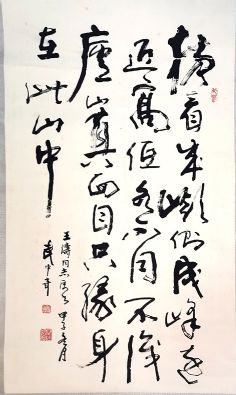 橫看成嶺側成峰遠
近高低各不同不識
廬山真面目只緣身
在此山中
王濤同志 甲子冬月
武中奇